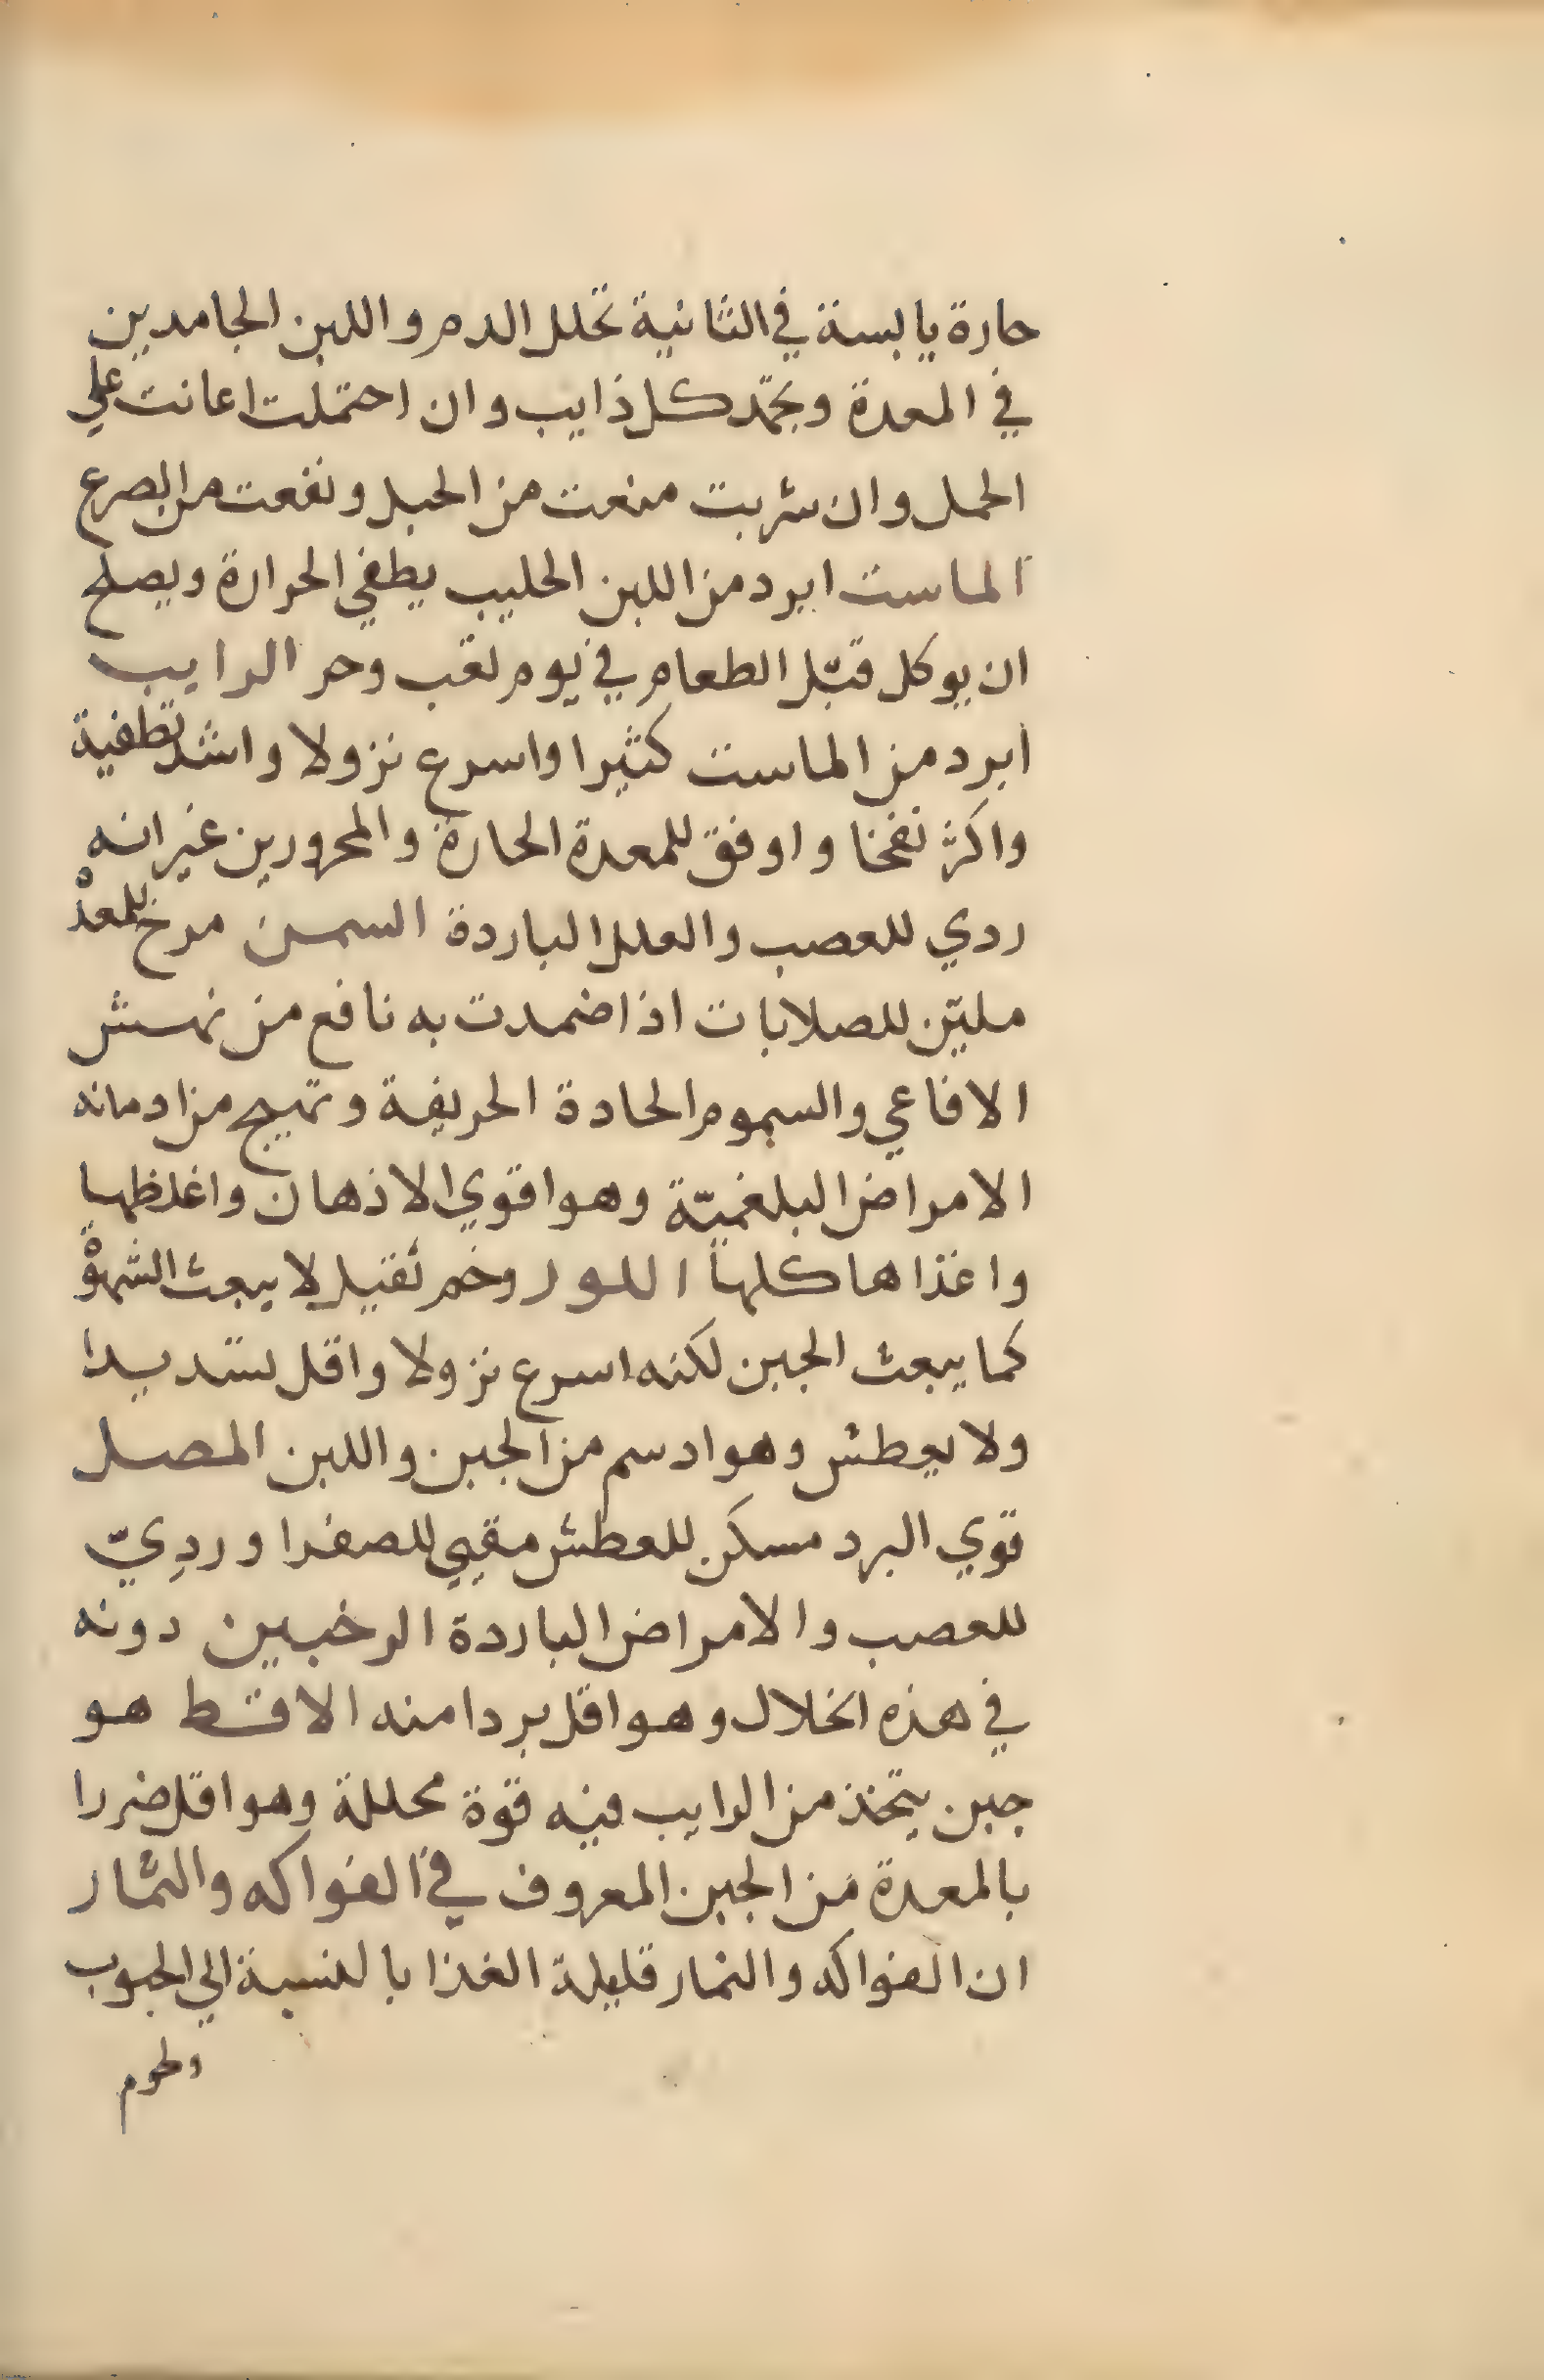 حارة يابسة في الثانية تحلل الدم واللبن الجامدين
في المعدة وتجمّد كل ذايب وان احتملت اعانت علي
الحمل وان شربت منعت من الحبل ونفعت من الصرع
الماست ابرد من اللبن الحليب يطفي الحرارة ويصلح
ان يوكل قبل الطعام في يوم تعب وحر الرايب
ابرد من الماست كثيرا واسرع نزولا واشد تطفية
واكثر نفخا واوفق للمعدة الحارة والمحرورين غير انه
ردي للعصب والعلل الباردة السمن مرخ للمعدة
مليّن للصلابات اذا ضمدت به نافع من نهش
الافاعي والسموم الحادة الحريفة وتهيج من ادمانه
الامراض البلغميّة وهو اقوي الاذهان واغلظها
واغذاها كلها اللور وخم ثقيل لا يبعث الشهوة
كما يبعث الجبن لكنه اسرع نزولا واقل تسديدا
ولا يعطش وهو ادسم من الجبن واللبن المصل
قوي البرد مسكن للعطش مقيي للصفرا ورديّ
للعصب والامراض الباردة الرخبين دونه
في هذه الخلال وهو اقل بردا منه الاقط هو
جبن يتخذ من الرايب فيه قوة محللة وهو اقل ضررا
بالمعدة من الجبن المعروف في الفواكه والثمار
ان الفواكه والثمار قليلة الغذا بالنسبة الي الحبوب
ولحوم